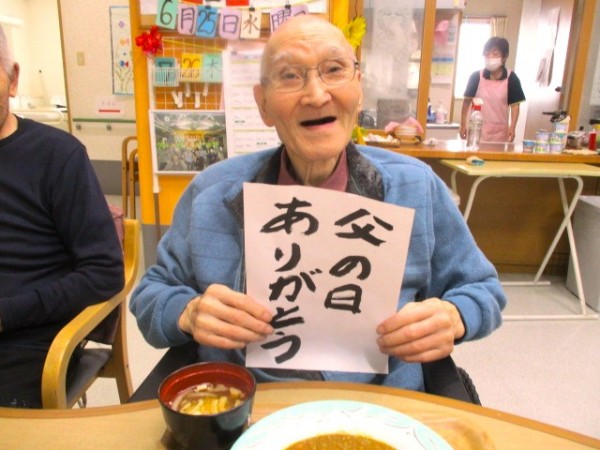 6月25日水曜
父の日
ありがとう